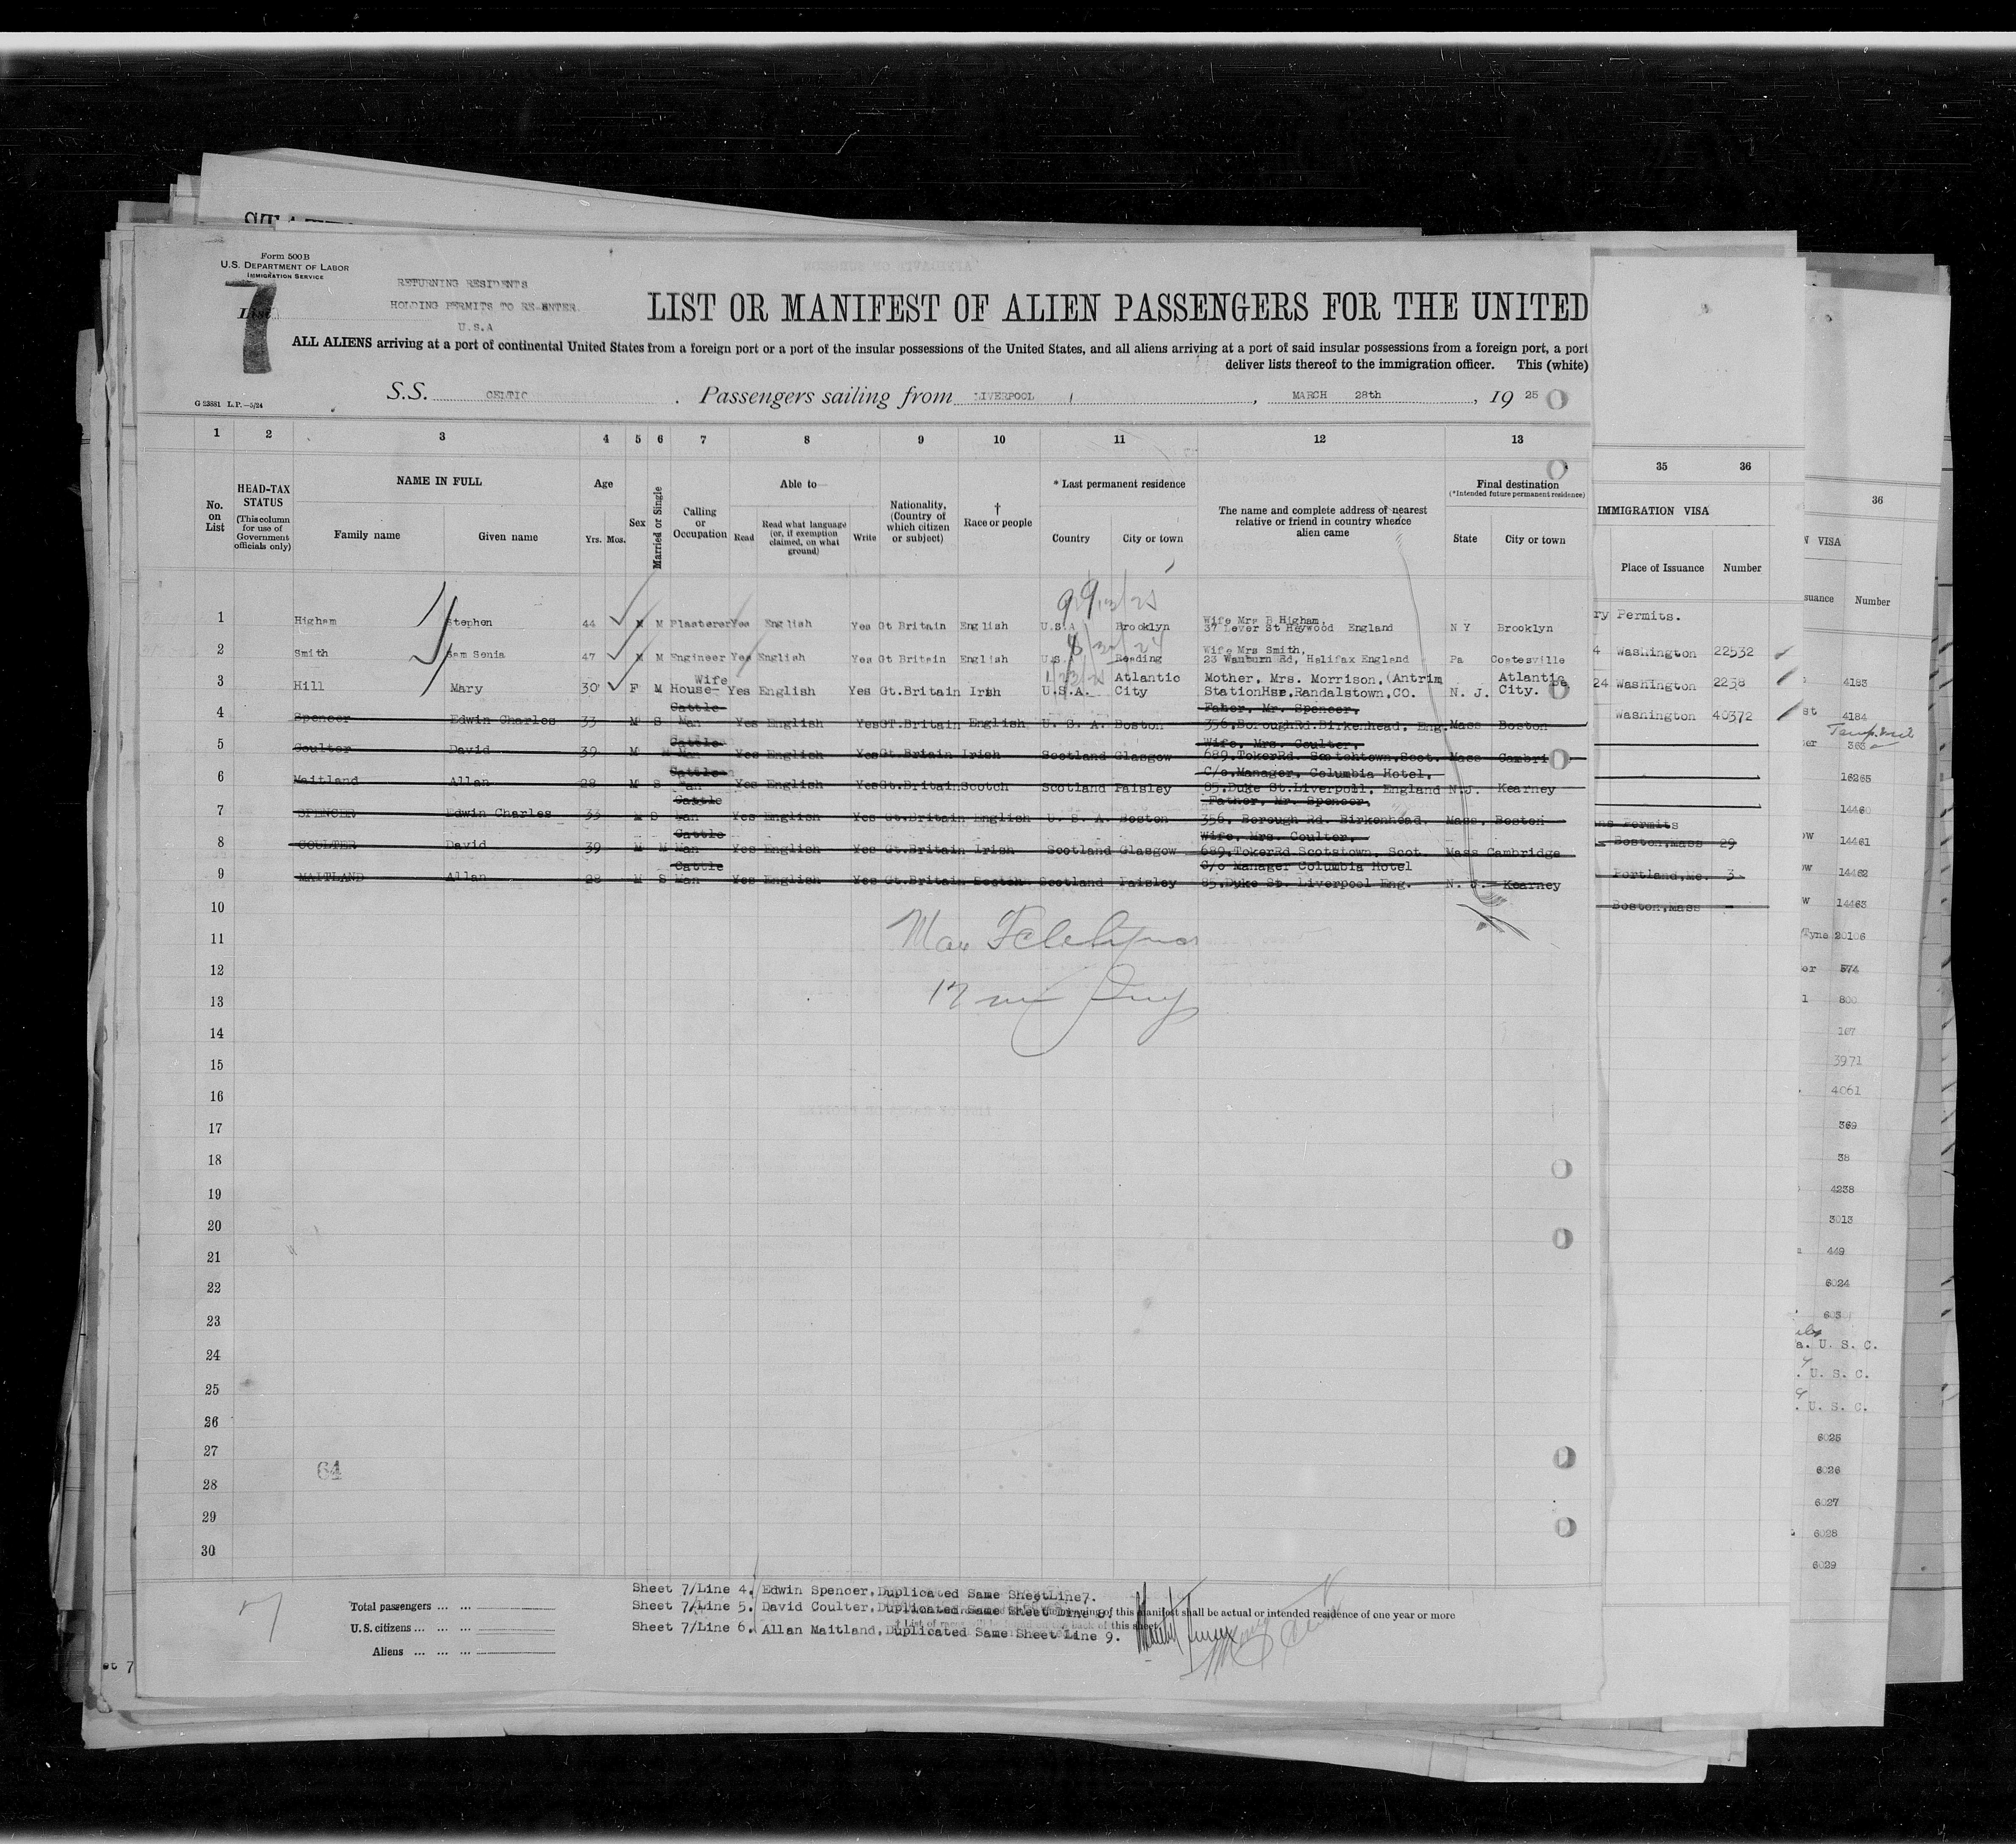 Form 500B
U.S. DEPARTMENT OF LABOR
IMMIGRATION SERVICE
7
List
RETURNING RESIDENTS
HOLDING PERMITS TO RE-ENTER
U.S.A
LIST OR MANIFEST OF ALIEN PASSENGERS FOR THE UNITED
ALL ALIENS arriving at a port of continental United States from a foreign port or a port of the insular possessions of the United States, and all aliens arriving at a port of said insular possessions from a foreign port, a port
deliver lists thereof to the immigration officer. This (white)
G 23881 L.P.—5/24
S.S. CELTIC . Passengers sailing from LIVERPOOL , MARCH 28th , 19 25
1 2 3 4 5 6 7 8 9 10 11 12 13
No. on List
HEAD-TAX STATUS
(This column for use of Government officials only)
NAME IN FULL
Family name Given name
Age
Yrs. Mos.
Sex
Married or Single
Calling or Occupation
Able to
Read
Read what language (or, if exemption claimed, on what ground)
Write
Nationality, (Country of which citizen or subject)
† Race or people
* Last permanent residence
Country City or town
The name and complete address of nearest relative or friend in country whence alien came
Final destination
(*Intended future permanent residence)
State City or town
35 36
IMMIGRATION VISA
Place of Issuance Number
36
N VISA
suance Number
Wife Mrs B Higham,
1 Higham Stephen 44 M M Plasterer Yes English Yes Gt Britain English U.S.A Brooklyn 37 Lever St Heywood England N Y Brooklyn
Wife Mrs Smith,
2 Smith Sam Senia 47 M M Engineer Yes English Yes Gt Britain English U.S.A Reading 23 Wanburn Rd, Halifax England Pa Coatesville
Wife Atlantic Mother, Mrs. Morrison, (Antrim Atlantic
3 Hill Mary 30 F M House- Yes English Yes Gt.Britain Irish U.S.A. City StationHse.Randalstown,CO. N. J. City.
Cattle Faher, Mr. Spencer,
4 Spencer Edwin Charles 33 M S Man Yes English Yes GT.Britain English U. S. A. Boston 356,BoroughRd.Birkenhead, Eng. Mass Boston
Cattle Wife, Mrs. Coulter,
5 Coulter David 39 M M Man Yes English Yes Gt.Britain Irish Scotland Glasgow 689,TokerRd. Scotchtown,Scot. Mass Cambri
Cattle C/o.Manager, Columbia Hotel,
6 Maitland Allan 28 M S Man Yes English Yes Gt.Britain Scotch Scotland Paisley 85.Duke St.Liverpoll, England N.J. Kearney
Cattle Father, Mr. Spencer,
7 SPENCER Edwin Charles 33 M S Man Yes English Yes Gt.Britain English U. S. A. Boston 356, Borough Rd. Birkenhead. Mass. Boston
Cattle Wife, Mrs. Coulter,
8 COULTER David 39 M M Man Yes English Yes Gt.Britain Irish Scotland Glasgow 689,TokerRd Scotstown, Scot. Mass Cambridge
Cattle C/o Manager Columbia Hotel
9 MAITLAND Allan 28 M S Man Yes English Yes Gt.Britain Scotch Scotland Paisley 85.Duke St. Liverpool Eng. N. J. Kearney
10
11
12
13
14
15
16
17
18
19
20
21
22
23
24
25
26
27
28
29
30
64
ry Permits.
4 Washington 22532
24 Washington 2238
Washington 40372
ns Permits
Boston,Mass 29
Portland,Me. 3
Boston,Mass
4183
st 4184
er 363
16265
14460
ow 14461
ow 14462
w 14463
Tyne 20106
or 574
l 800
167
3971
4061
369
38
4238
3013
449
6024
6030
a. U. S. C.
. U. S. C.
. U. S. C.
6025
6026
6027
6028
6029
7
Total passengers ... ...
U.S. citizens ... ... ...
Aliens ... ... ...
Sheet 7/Line 4. Edwin Spencer,Duplicated Same SheetLine7.
Sheet 7/Line 5. David Coulter,Duplicated Same Sheet Line 8.
of this manifest shall be actual or intended residence of one year or more
Sheet 7/Line 6. Allan Maitland,Duplicated Same Sheet Line 9.
et 7